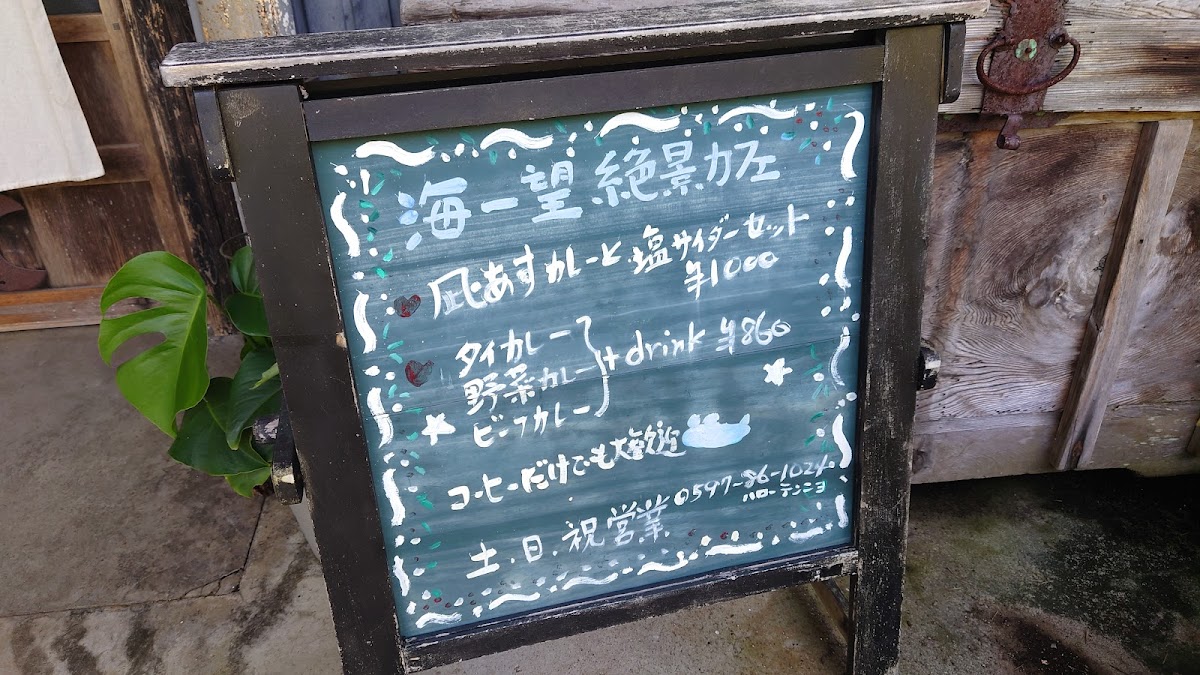 海一望絶景カフェ
凪あすカレーと塩サイダーセット
¥1000
タイカレー
野菜カレー
ビーフカレー
+drink ¥860
コーヒーだけでも大歓迎
土.日.祝営業
0597-86-1024
ハローテンシヨ